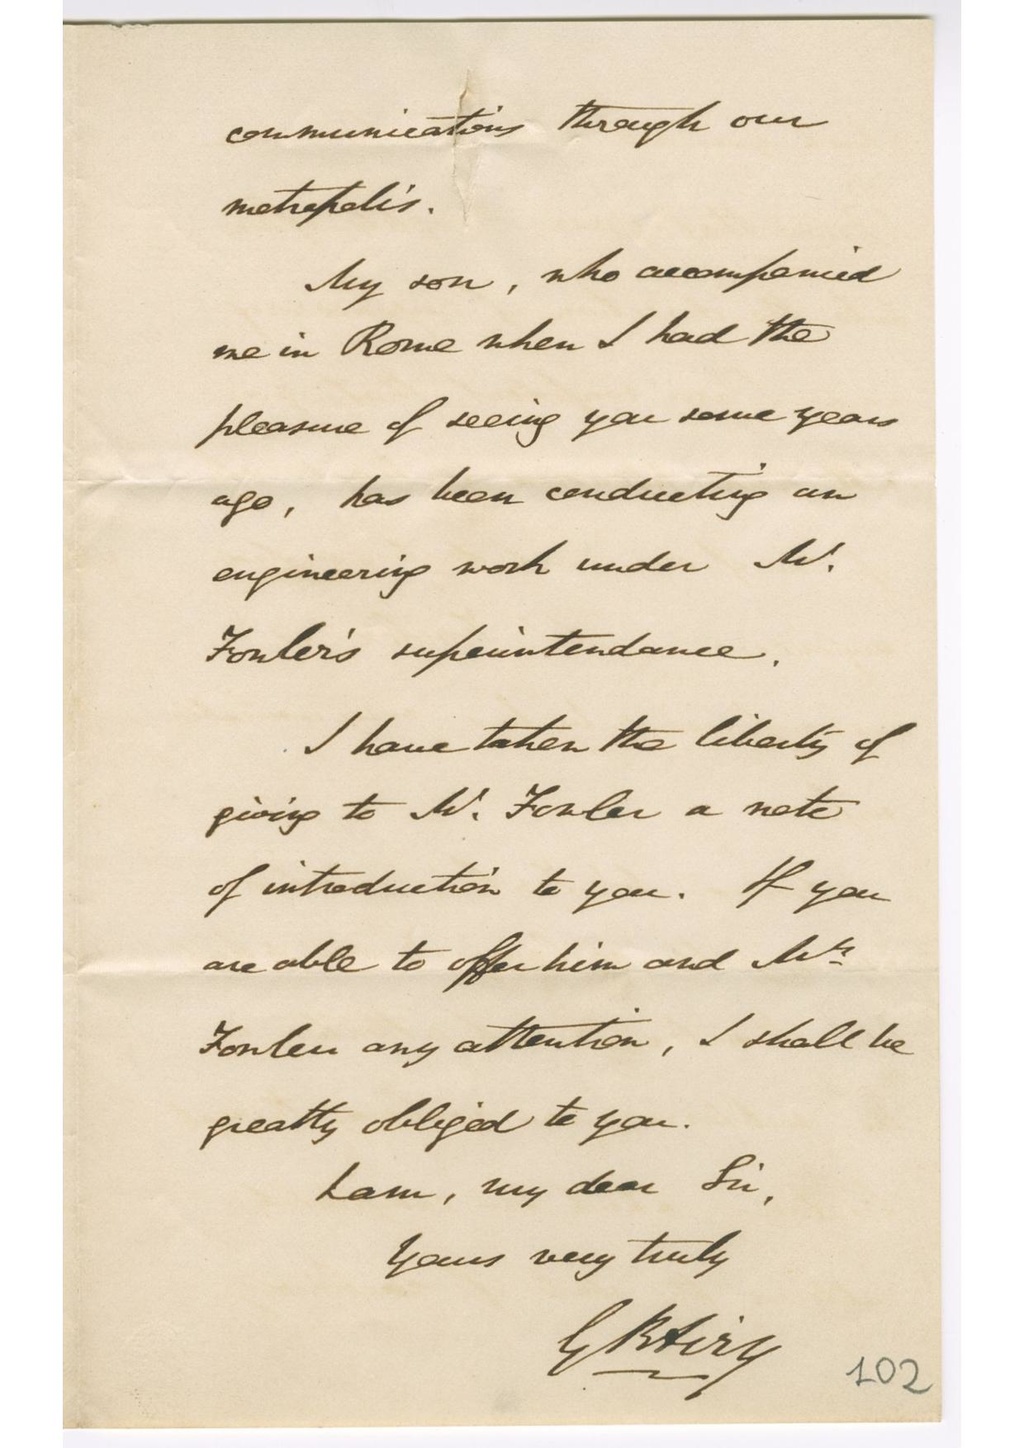 communications through our
metropolis.
My son, who accompanied
me in Rome when I had the
pleasure of seeing you some years
ago, has been conducting an
engineering work under Mr.
Fowler's superintendance.
I have taken the liberty of
giving to Mr. Fowler a note
of introduction to you. If you
are able to offer him and Mrs
Fowler any attention, I shall be
greatly obliged to you.
I am, my dear Sir,
Yours very truly
G B Airy
102